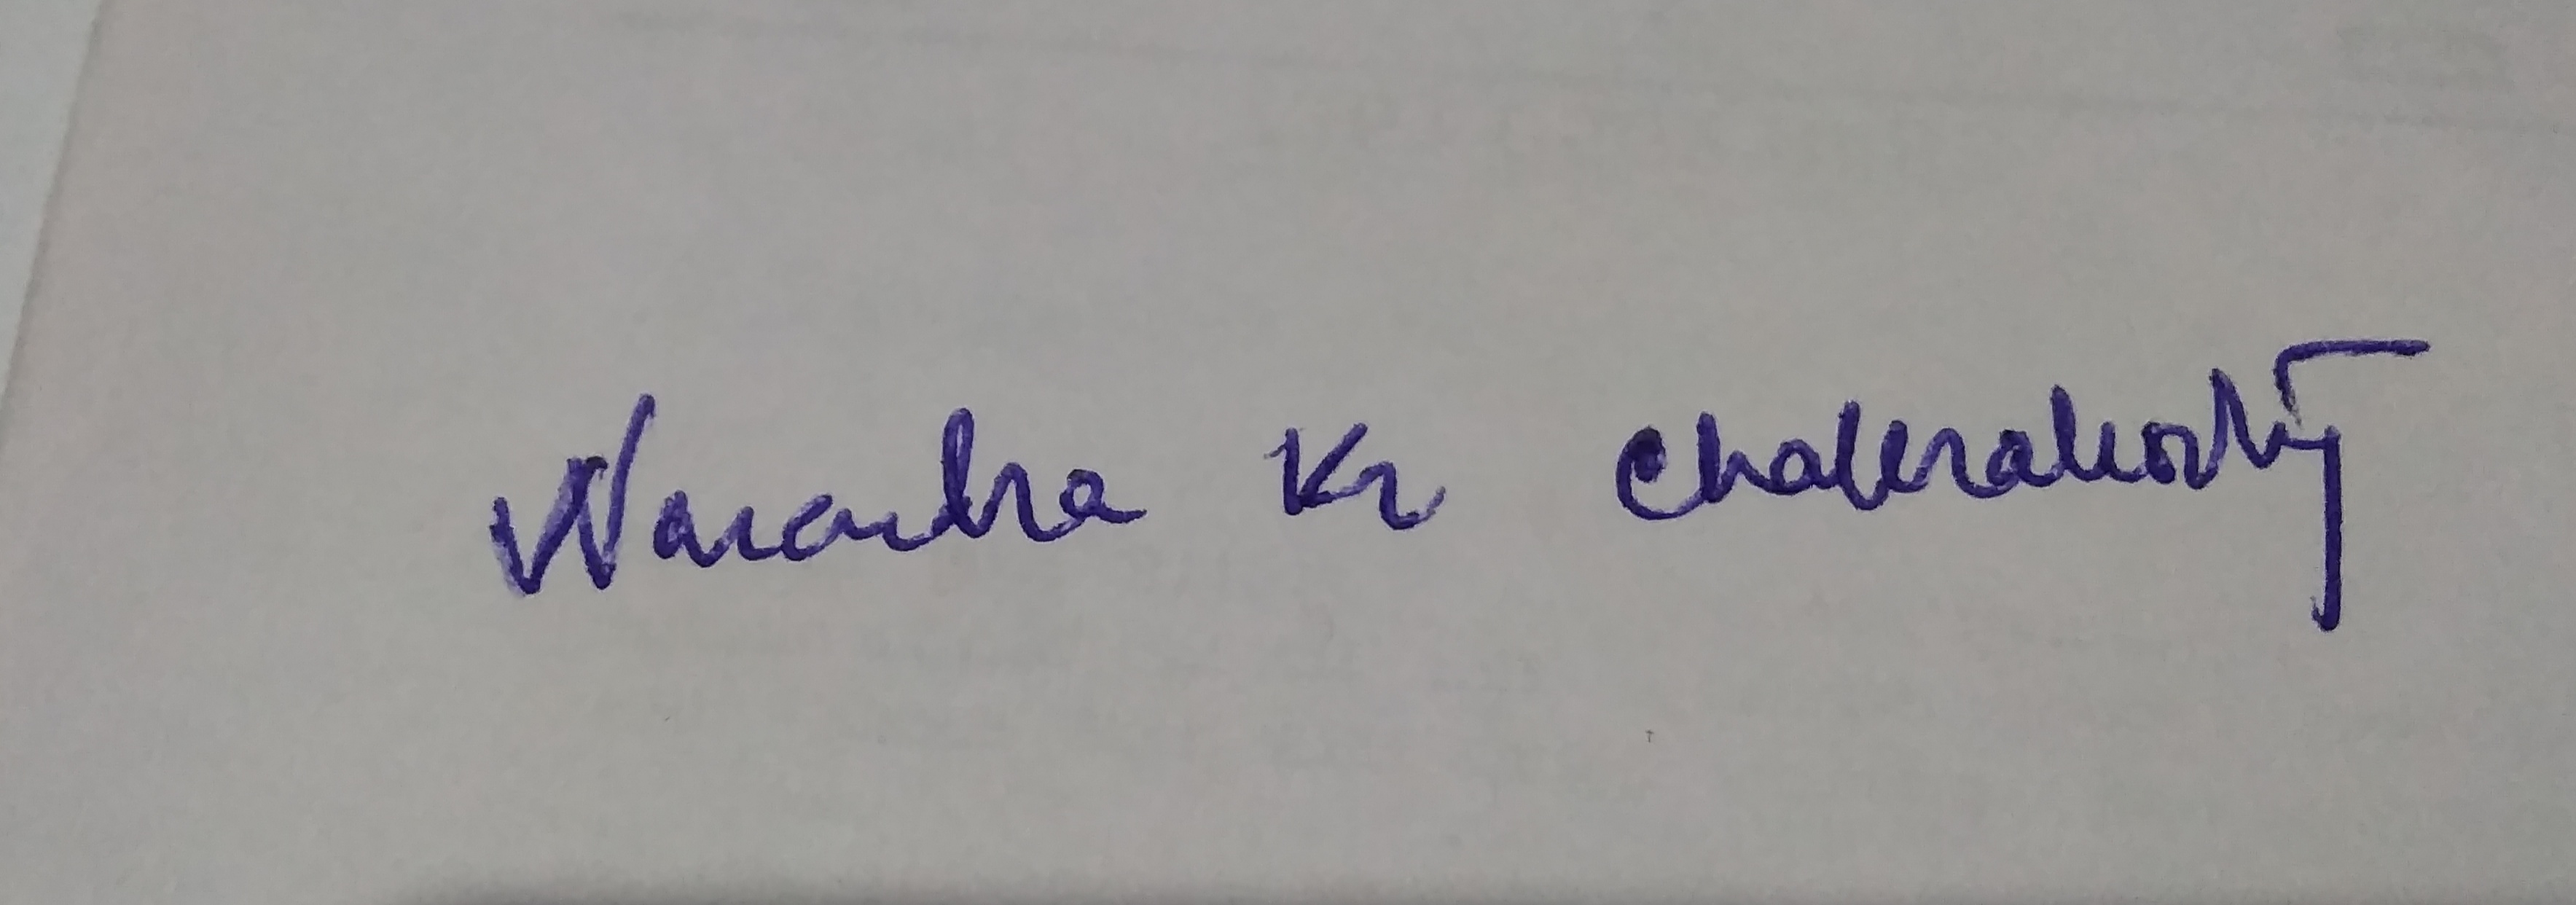 Narendra Kr Chakraborty